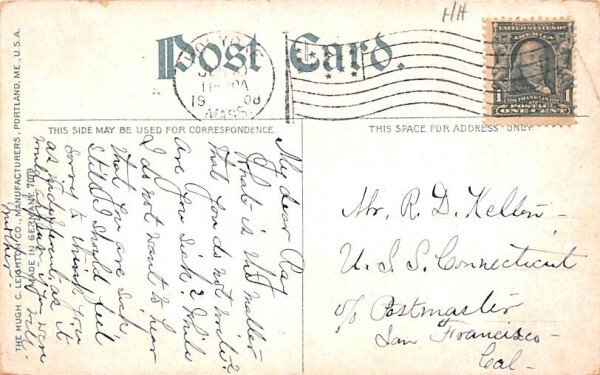 H/H
Post Card.
HOLYOKE
11-30A
1908
MASS.
UNITED STATES OF AMERICA
1 1
POSTAGE
ONE CENT
THIS SIDE MAY BE USED FOR CORRESPONDENCE
THIS SPACE FOR ADDRESS ONLY
THE HUGH C. LEIGHTON CO., MANUFACTURERS, PORTLAND, ME., U.S.A.
MADE IN GERMANY
My dear Ray
What is the matter
that you do not write?
Are you sick? While
I do not want to hear
that you are sick
still I should feel
sorry to think you
as independent as it
would if you were
well.
mother.
Mr. R. D. Kellen
U. S. S. Connecticut
c/o Postmaster
San Francisco
Cal-